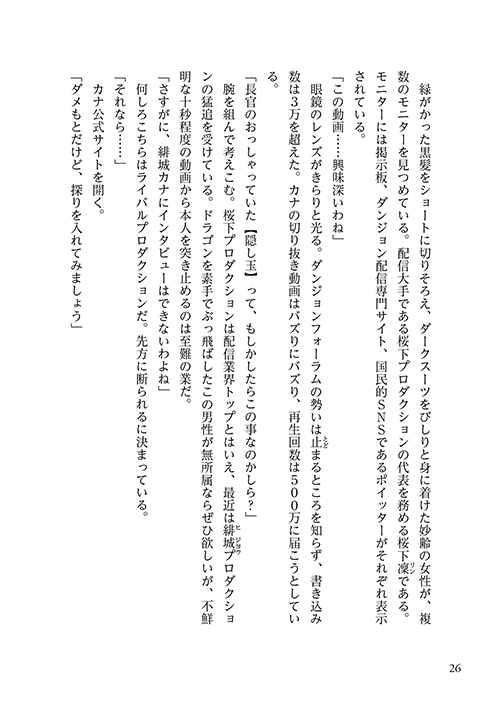 緑がかった黒髪をショートに切りそろえ、ダークスーツをぴしりと身に着けた妙齢の女性が、複
数のモニターを見つめている。配信大手である桜下プロダクションの代表を務める桜下凜リンである。
モニターには掲示板、ダンジョン配信専門サイト、国民的ＳＮＳであるポイッターがそれぞれ表示
されている。
「この動画……興味深いわね」
眼鏡のレンズがきらりと光る。ダンジョンフォーラムの勢いは止とどまるところを知らず、書き込み
数は３万を超えた。カナの切り抜き動画はバズりにバズり、再生回数は５００万に届こうとしてい
る。
「長官のおっしゃっていた【隠し玉】って、もしかしたらこの事なのかしら？」
腕を組んで考えこむ。桜下プロダクションは配信業界トップとはいえ、最近は緋城ヒジョウプロダクショ
ンの猛追を受けている。ドラゴンを素手でぶっ飛ばしたこの男性が無所属ならぜひ欲しいが、不鮮
明な十秒程度の動画から本人を突き止めるのは至難の業だ。
「さすがに、緋城カナにインタビューはできないわよね」
何しろこちらはライバルプロダクションだ。先方に断られるに決まっている。
「それなら……」
カナ公式サイトを開く。
「ダメもとだけど、探りを入れてみましょう」
26